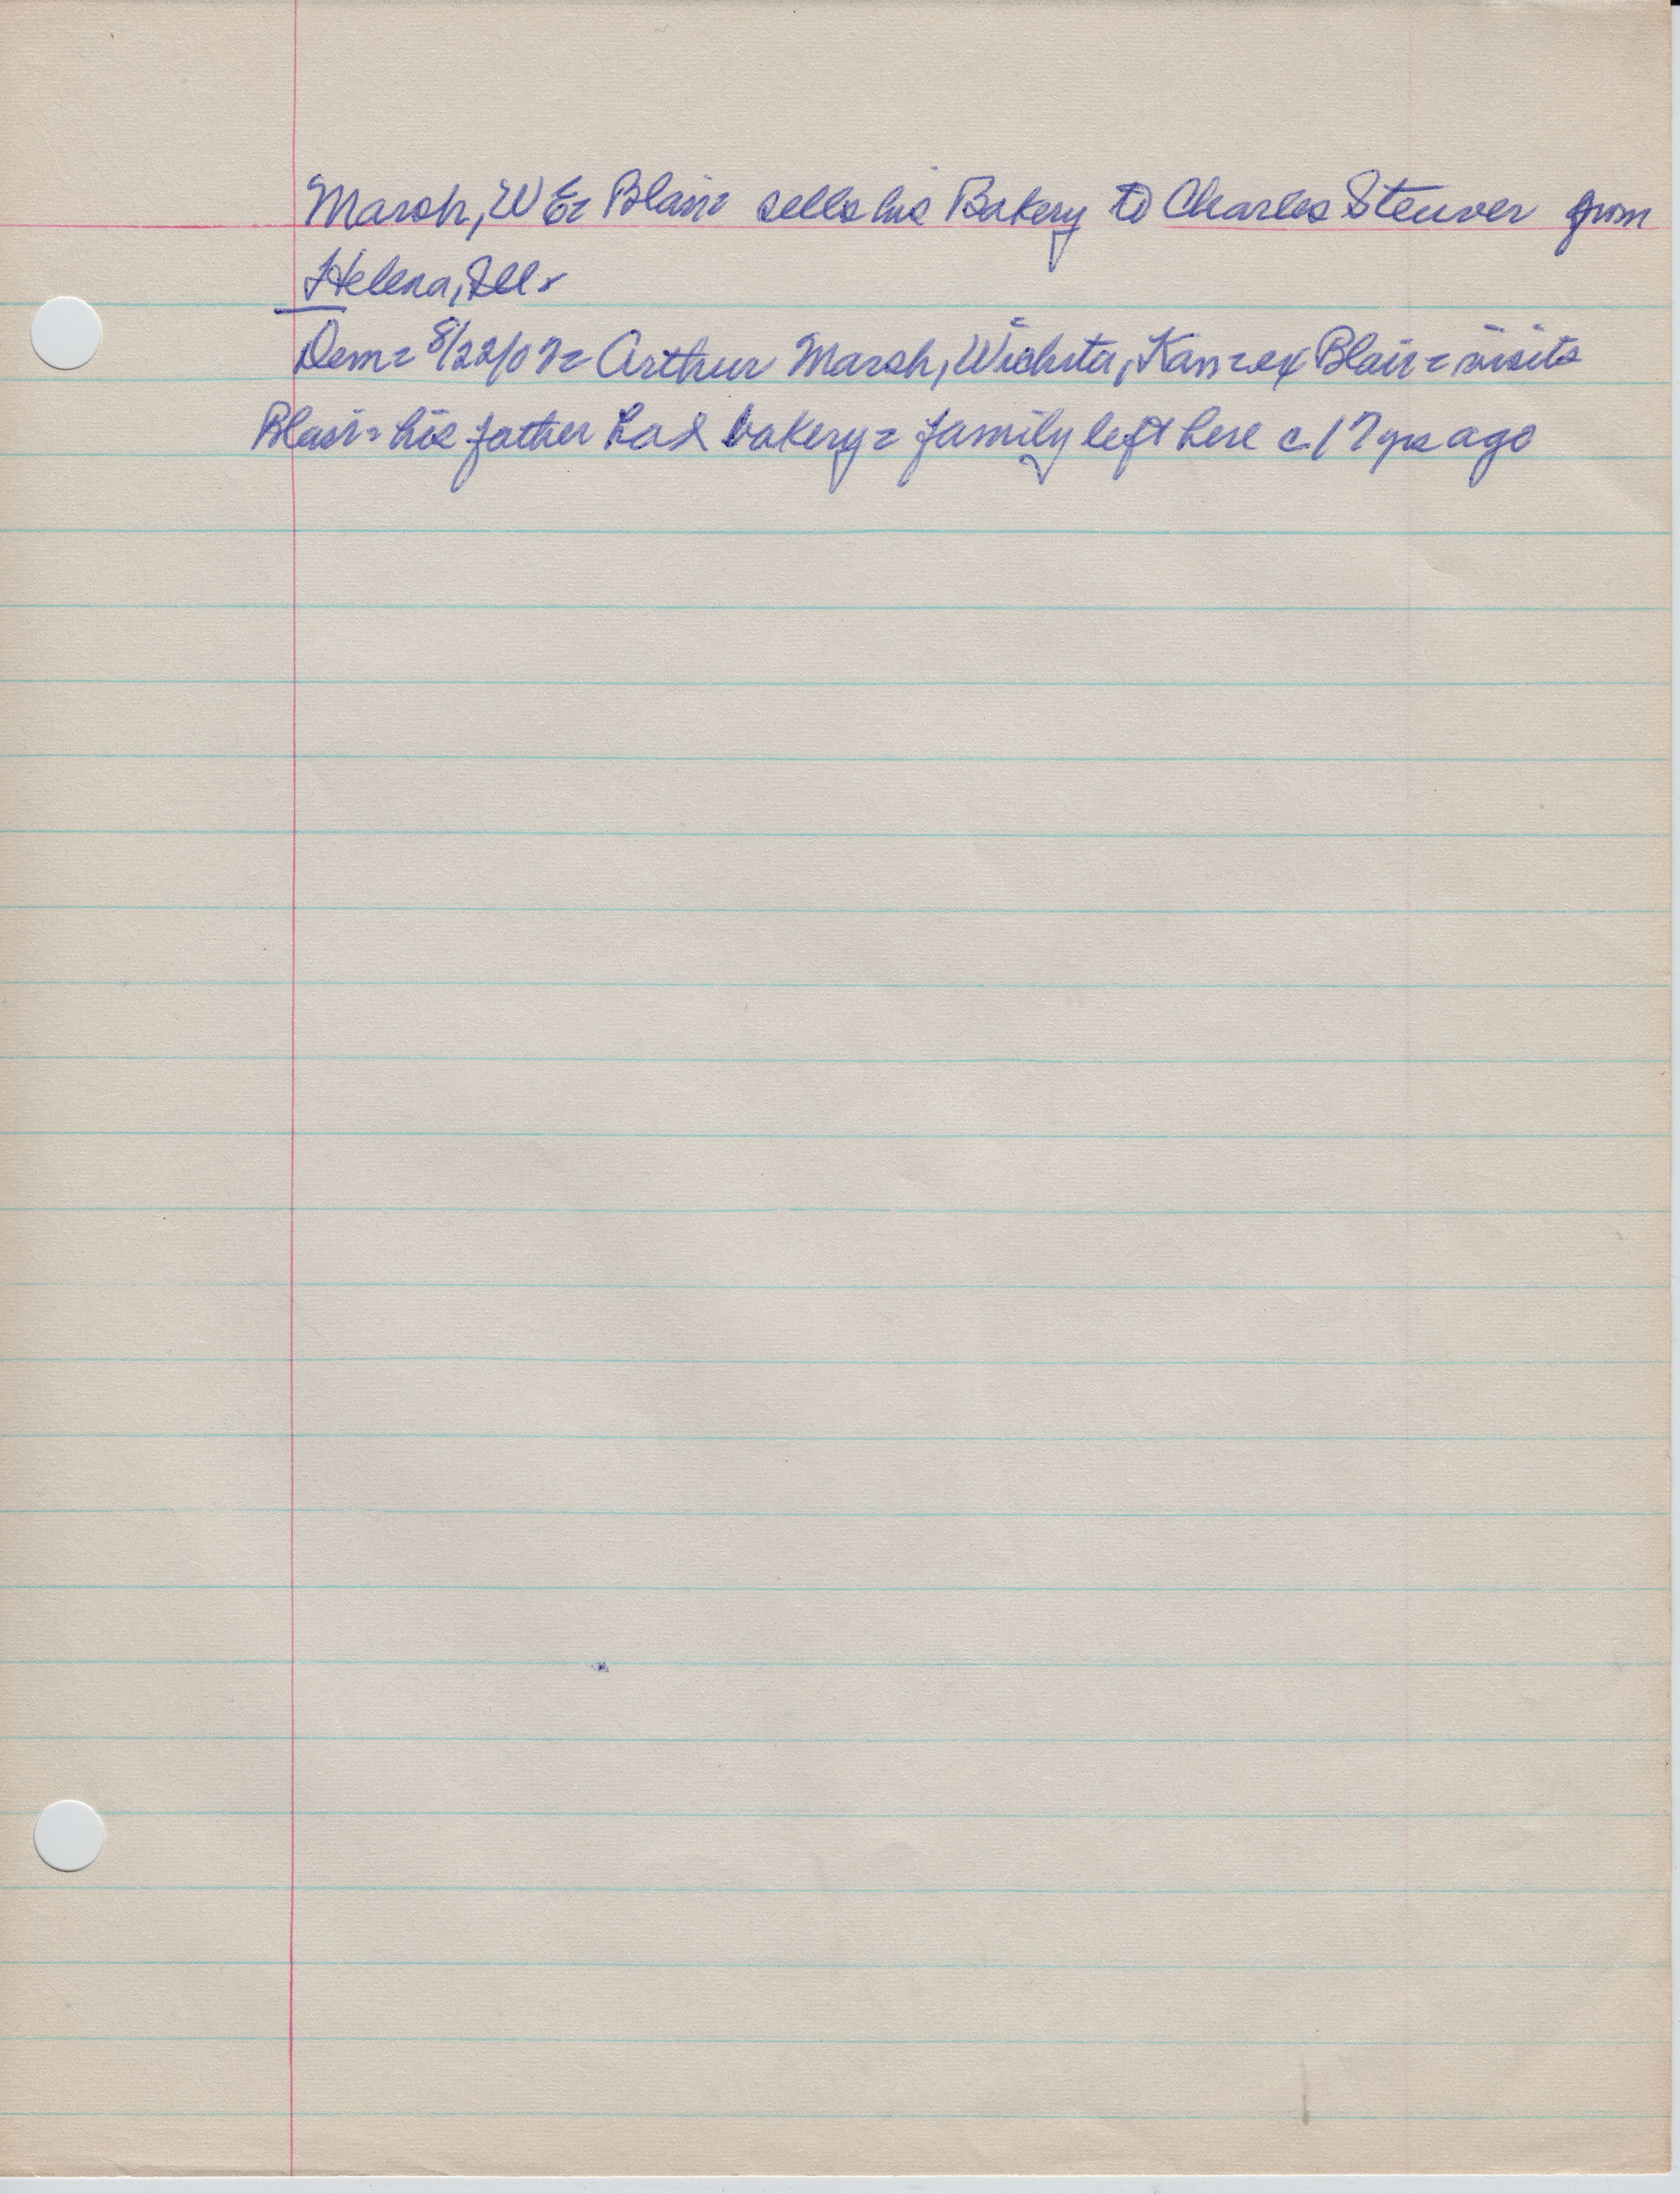 Marsh, W E= Blair= sells his Bakery to Charles Steuver from
Helena, Ill.
Dem= 8/22/07= Arthur Marsh, Wichita, Kan= ex Blair= visits
Blair= his father had bakery= family left here c 17 yrs ago